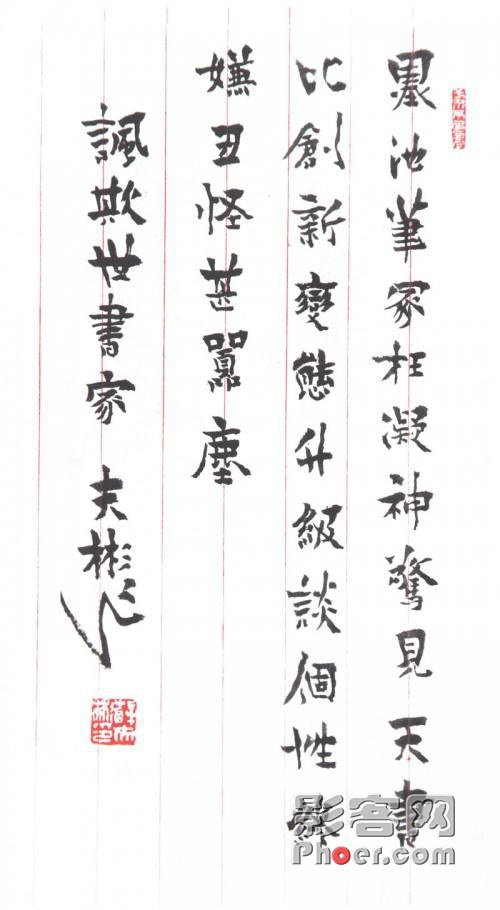 墨池筆冢枉凝神驚見天書
比創新變態升級談個性
嫌丑怪甚囂塵
諷欺世書家 夫彬作
影客网
Phoer.com